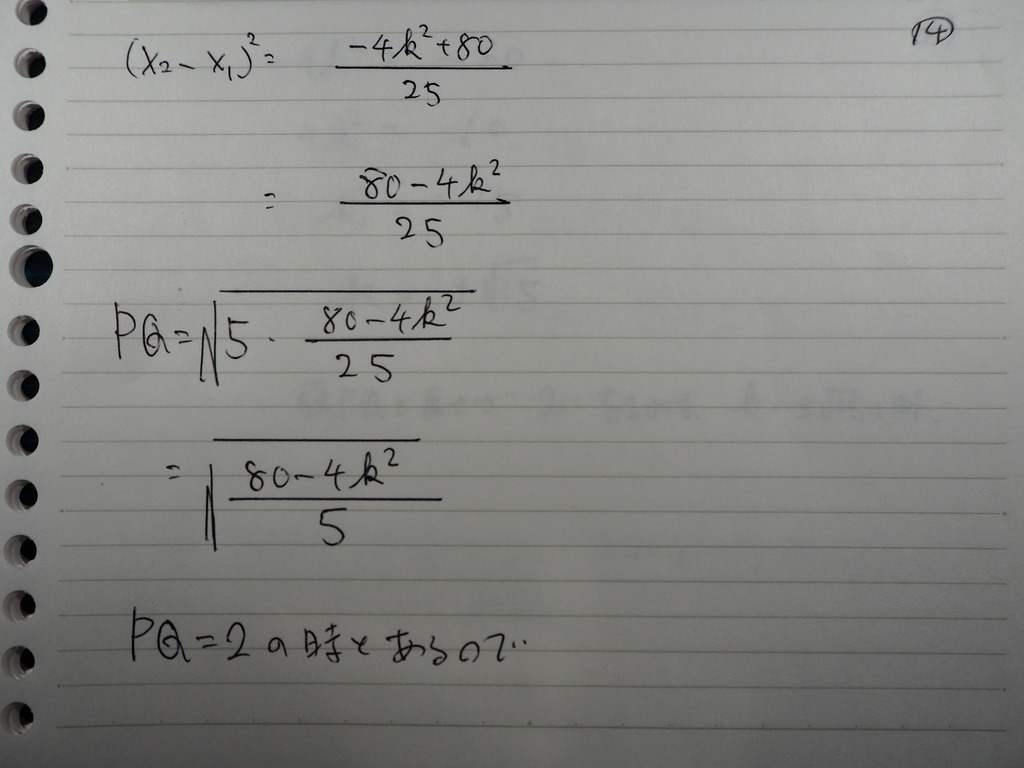 ⑭
(x₂-x₁)² = (-4k²+80)/25
= (80-4k²)/25
PQ=√(5・(80-4k²)/25)
=√((80-4k²)/5)
PQ=2の時とあるので